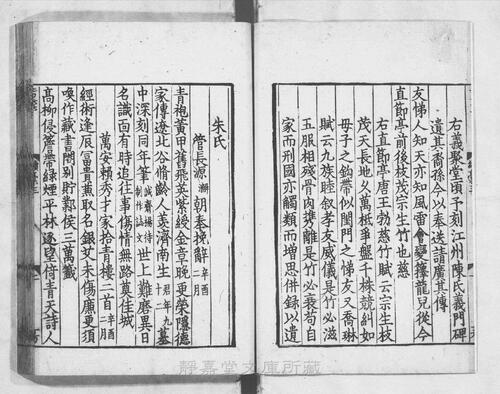 右義聚堂頃予刻江州陳氏義門碑
遺其裔孫今以奉送請廣其傳
友悌人知天亦知風雷會變籜龍兒從今
直節亭前後枝茂宗生竹也慈
右直節亭唐王勃慈竹賦云宗生枝
茂天長地久萬柢爭盤千株競糾如
母子之鈎帶似閨門之悌友又喬琳
賦云九族睦敘孝友威儀是竹必滋
五服相殘骨肉攜離是竹必衰苟自
家而刑國亦觸類而增思併録以遺
朱氏
管長源瀬朝奉挽辭辛酉二月
青袍黃甲舊飛英紫綬金章晚更榮隱德
家傳遼北谷脩齡人羡濟南生君年九十一墓
中深刻同年筆誠齋楊待制作誌文世上難磨異日
名識面有時追往事傷情無路奠佳城
萬安賴秀才家拾青樓二首辛酉三月
經術逢辰冨貴黄取名銀艾未傷廉更須
喚作藏書閣别貯鄴侯三萬籤
高柳侵簷帶綠煙平林遠望倚青天詩人
靜嘉堂文庫所藏